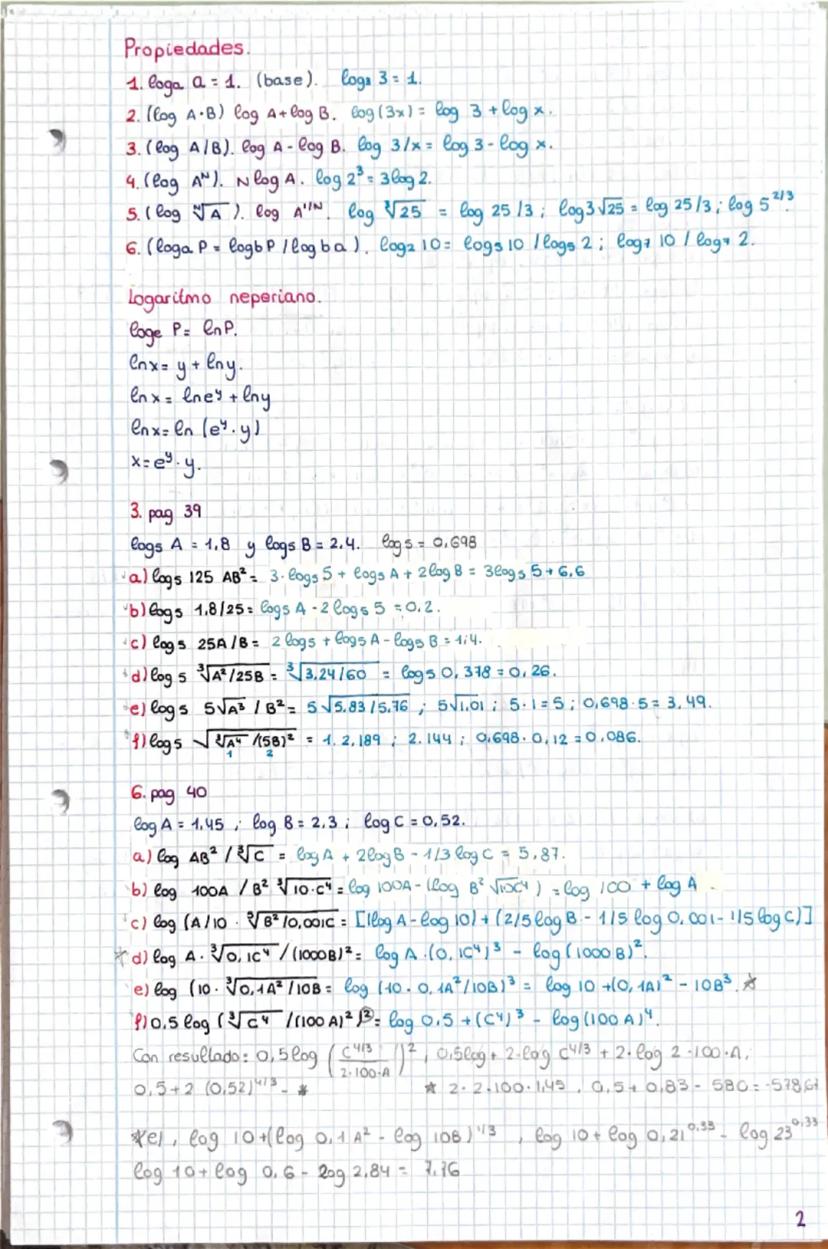 Propiedades.
1. loga a = 1. (base). log3 3 = 1.
2. (log A·B) log A + log B. log (3x) = log 3 + log x.
3. (log A/B). log A - log B. log 3/x = log 3 - log x.
4. (log Aᴺ). N log A. log 2³ = 3 log 2.
5. (log ᴺ√A). log A¹/ᴺ. log ³√25 = log 25/3 ; log 3√25 = log 25/3 ; log 5²/³.
6. (loga P = logb P / log b a). log2 10 = log5 10 / log5 2 ; log7 10 / log7 2.
Logaritmo neperiano.
loge P = ln P.
ln x = y + ln y.
ln x = ln eʸ + ln y
ln x = ln (eʸ · y)
x = eʸ · y.
3. pag 39
log5 A = 1,8 y log5 B = 2,4. log 5 = 0,698
a) log5 125 AB² = 3·log5 5 + log5 A + 2 log B = 3 log5 5 + 6,6
b) log5 1,8/25 = log5 A - 2 log5 5 = 0,2.
c) log 5 25A/B = 2 log5 + log5 A - log5 B = 1,4.
d) log 5 ³√A²/25B = ³√3,24/60 = log5 0,378 = 0,26.
e) log5 5√A³ / B² = 5√5,83/5,76 ; 5√1,01 ; 5·1 = 5 ; 0,698·5 = 3,49.
f) log5 √³√A⁴ /(5B)² = 1. 2,189 ; 2. 144 ; 0,698·0,12 = 0,086.
1 2
6. pag 40
log A = 1,45 ; log B = 2,3 ; log C = 0,52.
a) log AB² / ³√C = log A + 2 log B - 1/3 log C = 5,87.
b) log 100A / B² ³√10·C⁴ = log 100A - (log B² √10C⁴) = log 100 + log A
c) log (A/10 · ⁵√B²/0,001C = [(log A - log 10) + (2/5 log B - 1/5 log 0,001 - 1/5 log C)]
* d) log A · ³√0,1C⁴ / (1000B)² = log A · (0,1C⁴)³ - log (1000 B)².
e) log (10 · ³√0,1A² / 10B = log (10 · 0,1A² / 10B)³ = log 10 + (0,1A)² - 10B³. *
f) 0,5 log (³√C⁴ / (100 A)²)² = log 0,5 + (C⁴)³ - log (100 A)⁴.
Con resultado: 0,5 log (C⁴/³ / 2·100·A)², 0,5 log + 2·log C⁴/³ + 2·log 2·100·A,
0,5 + 2 (0,52)⁴/³ - * * 2·2·100·1,45. 0,5 + 0,83 - 580 = -578,67
*e), log 10 + (log 0,1 A² - log 10B)¹/³, log 10 + log 0,21⁰·³³ - log 23⁰·³³
log 10 + log 0,6 - log 2,84 = 7,76
2